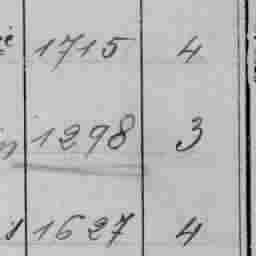 1715 4
1298 3
1627 4